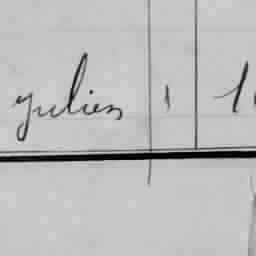 Julien 1 1